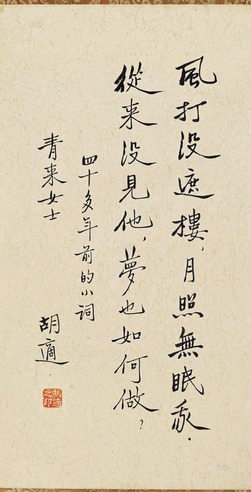 風打没遮樓，月照無眠我．
從来没見他，夢也如何做？
四十多年前的小词
青来女士
胡適．